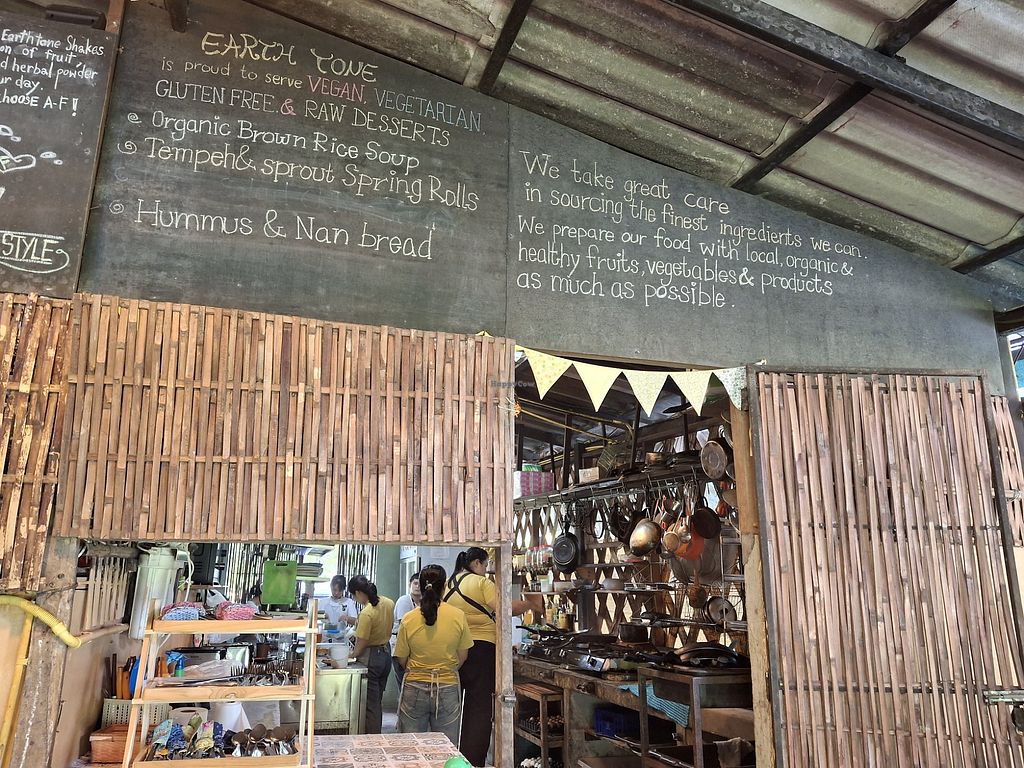 Earthtone Shakes
on of fruit,
d herbal powder
ur day.
choose A-F!
STYLE
EARTH TONE
is proud to serve VEGAN, VEGETARIAN,
GLUTEN FREE & RAW DESSERTS
Organic Brown Rice Soup
Tempeh & sprout Spring Rolls
Hummus & Nan bread
We take great care
in sourcing the finest ingredients we can.
We prepare our food with local, organic &
healthy fruits, vegetables & products
as much as possible.
HappyCow